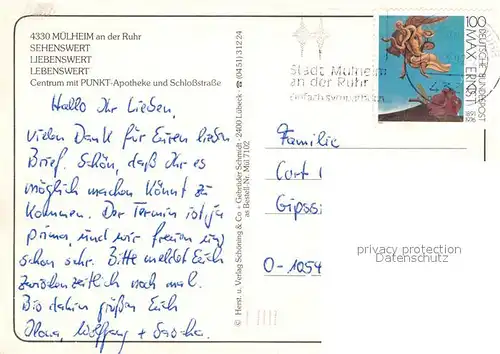 4330 MÜLHEIM an der Ruhr
SEHENSWERT
LIEBENSWERT
LEBENSWERT
Centrum mit PUNKT-Apotheke und Schloßstraße
Hallo Ihr Lieben,
vielen Dank für Euren lieben
Brief. Schön, daß Ihr es
möglich machen könnt zu
kommen. Der Termin ist ja
prima, und wir freuen uns
schon sehr. Bitte meldet Euch
zwischenzeitlich noch mal.
Bis dahin grüßen Euch
Ilona, Wolfgang + Sascha.
© Herst. u. Verlag Schöning & Co + Gebrüder Schmidt · 2400 Lübeck ☎ (04 51) 3 12 24
als Bestell-Nr. Mül 7102
Stadt Mülheim
an der Ruhr
100
DEUTSCHE BUNDESPOST
MAX ERNST
1891
Familie
Cort
Gipss
O-1054
privacy protection
Datenschutz